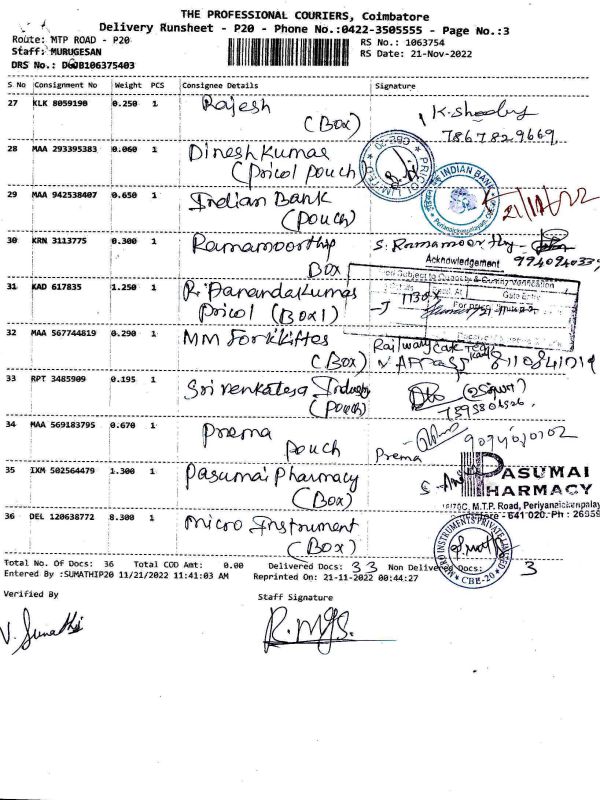 THE PROFESSIONAL COURIERS, Coimbatore
Delivery Runsheet - P20 - Phone No.:0422-3505555 - Page No.:3
Route: MTP ROAD - P20
RS No.: 1063754
Staff: MURUGESAN
RS Date: 21-Nov-2022
DRS No.: D60B106375403
S No Consignment No Weight PCS Consignee Details Signature
27 KLK 8059190 0.250 1 Rajesh
(Box)
7867829669
28 MAA 293395383 0.060 1 Dinesh Kumar
(Pricol Pouch)
PRICOL LIMITED CBE-20
29 MAA 942538407 0.650 1 Indian Bank
(Pouch)
INDIAN BANK
30 KRN 3113775 0.300 1 Ramamoorthy S. Ramamoorthy
Box
Acknowledgement
31 KAD 617835 1.250 1 R. Panandakumar
Pricol (Box1)
Subject to Quantity & Quality Verification
Gate Entry
32 MAA 567744819 0.290 1 MM Forkliftes
(Box)
33 RPT 3485909 0.195 1 Sri Venkatesa Industry
(Pouch)
34 MAA 569183795 0.670 1 Prema
Pouch
Prema
35 IXM 502564479 1.300 1 Pasumai Pharmacy
(Box)
PASUMAI
PHARMACY
M.T.P. Road, Periyanaickenpalay
641 020. Ph : 26959
36 DEL 120638772 8.300 1 Micro Instrument
(Box)
MICRO INSTRUMENTS PRIVATE LIMITED CBE-20
Total No. Of Docs: 36 Total COD Amt: 0.00 Delivered Docs: 33 Non Delivered Docs: 3
Entered By :SUMATHIP20 11/21/2022 11:41:03 AM Reprinted On: 21-11-2022 00:44:27
Verified By
Staff Signature
V. Sumathi
R. Mgs.